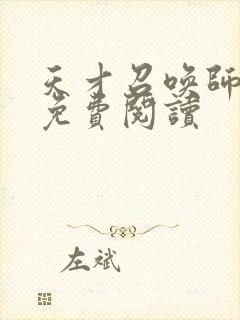 天才召喚師
免費閱讀
左斌